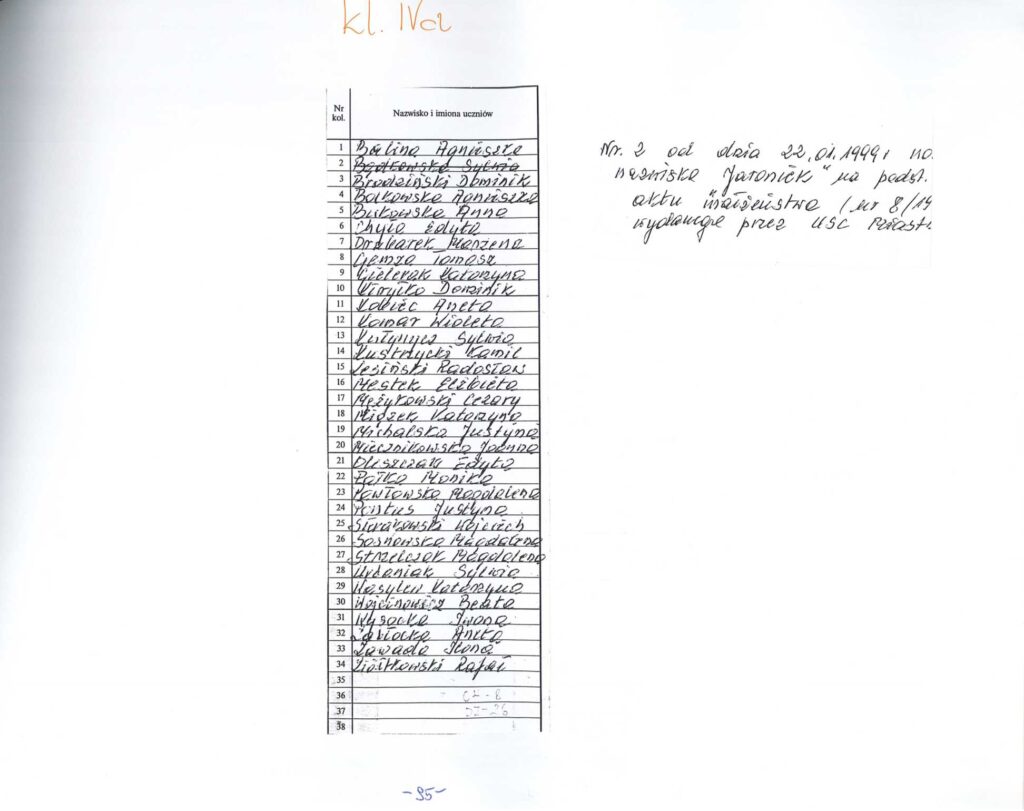 kl. IVa
Nr kol. Nazwisko i imiona uczniów
1 Balina Agnieszka
2 Bądkowska Sylwia
3 Brodziński Dominik
4 Borkowska Agnieszka
5 Bukowska Anna
6 Chyła Edyta
7 Drukarek Marzena
8 Gemza Tomasz
9 Gielerak Katarzyna
10 Kiryłko Dominik
11 Kobiec Aneta
12 Komar Wioleta
13 Sylwia
14 Kustrzycki Kamil
15 Lesiński Radosław
16 Mestek Elżbieta
17 Mężykowski Cezary
18 Miązek Katarzyna
19 Michalska Justyna
20 Miecznikowska Joanna
21 Oleszczak Edyta
22 Pałka Monika
23 Pawłowska Magdalena
24 Pontus Justyna
25 Sierakowski Wojciech
26 Sosnowska Magdalena
27 Strzelczak Magdalena
28 Urbaniak Sylwia
29 Wasylew Katarzyna
30 Wojcinowicz Beata
31 Wysocka Iwona
32 Żabłocka Aneta
33 Zawada Ilona
34 Ziółkowski Rafał
35
36 CZ-8
37 DZ-26
38
Nr. 2 od dnia 22.01.1999r na.
nazwisko "Jaroniek" na podst.
aktu małżeństwa (nr 8/19
wydanego przez USC Piast.
-95-